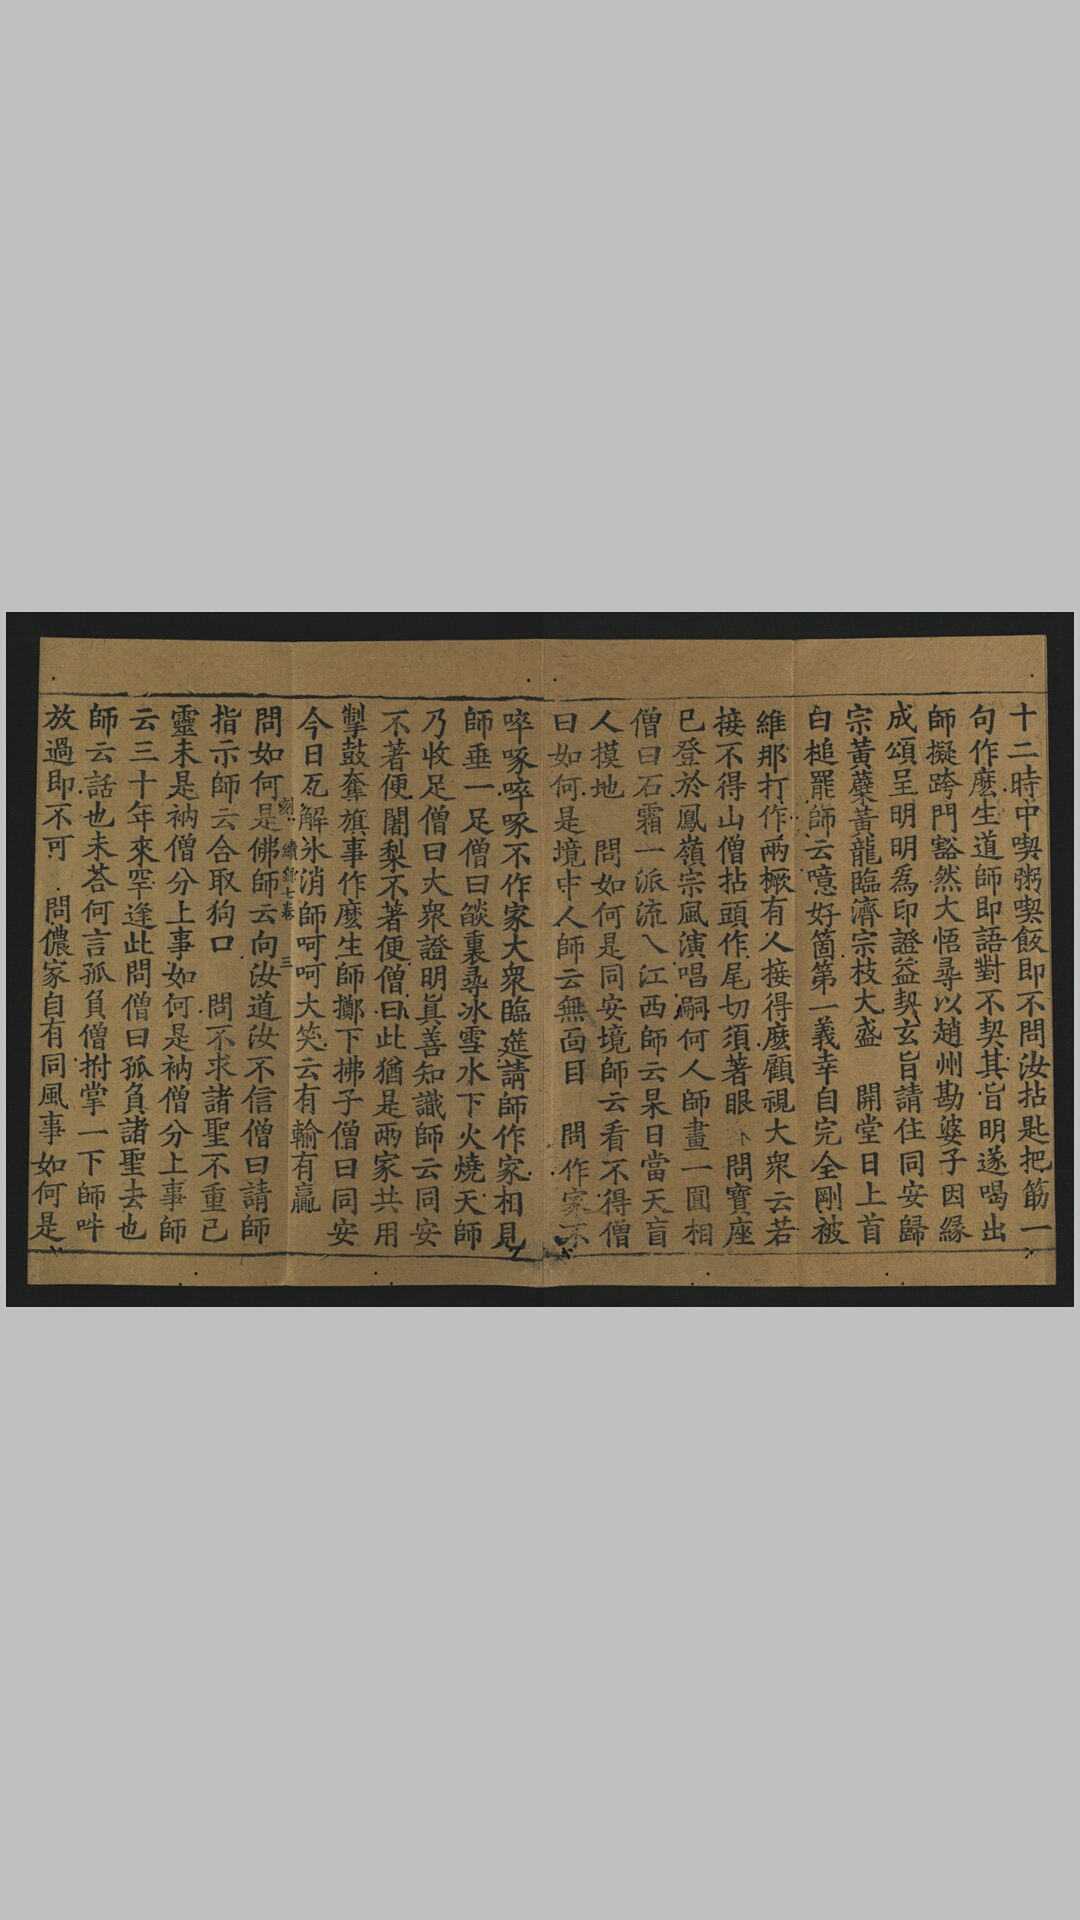 十二時中喫粥喫飯即不問汝拈匙把筯一
句作麽生道師即語對不契其旨明遂喝出
師擬跨門豁然大悟尋以趙州勘婆子因緣
成頌呈明明爲印證益契玄旨請住同安歸
宗黃蘗黃龍臨濟宗枝大盛　開堂日上首
白槌罷師云噫好箇第一義幸自完全剛被
維那打作兩橛有人接得麽顧視大衆云若
接不得山僧拈頭作尾切須著眼　問寶座
已登於鳳嶺宗風演唱嗣何人師畫一圓相
僧曰石霜一派流入江西師云杲日當天盲
人摸地　問如何是同安境師云看不得僧
曰如何是境中人師云無面目　問作家不
啐啄啐啄不作家大衆臨筵請師作家相見
師垂一足僧曰燄裏尋冰雪水下火燒天師
乃收足僧曰大衆證明眞善知識師云同安
不著便闍梨不著便僧曰此猶是兩家共用
掣鼓奪旗事作麽生師擲下拂子僧曰同安
今日瓦解氷消師呵呵大笑云有輸有贏
續錄七卷　三
問如何是佛師云向汝道汝不信僧曰請師
指示師云合取狗口　問不求諸聖不重己
靈未是衲僧分上事如何是衲僧分上事師
云三十年來罕逢此問僧曰孤負諸聖去也
師云話也未荅何言孤負僧拊掌一下師吽
放過即不可　問儂家自有同風事如何是